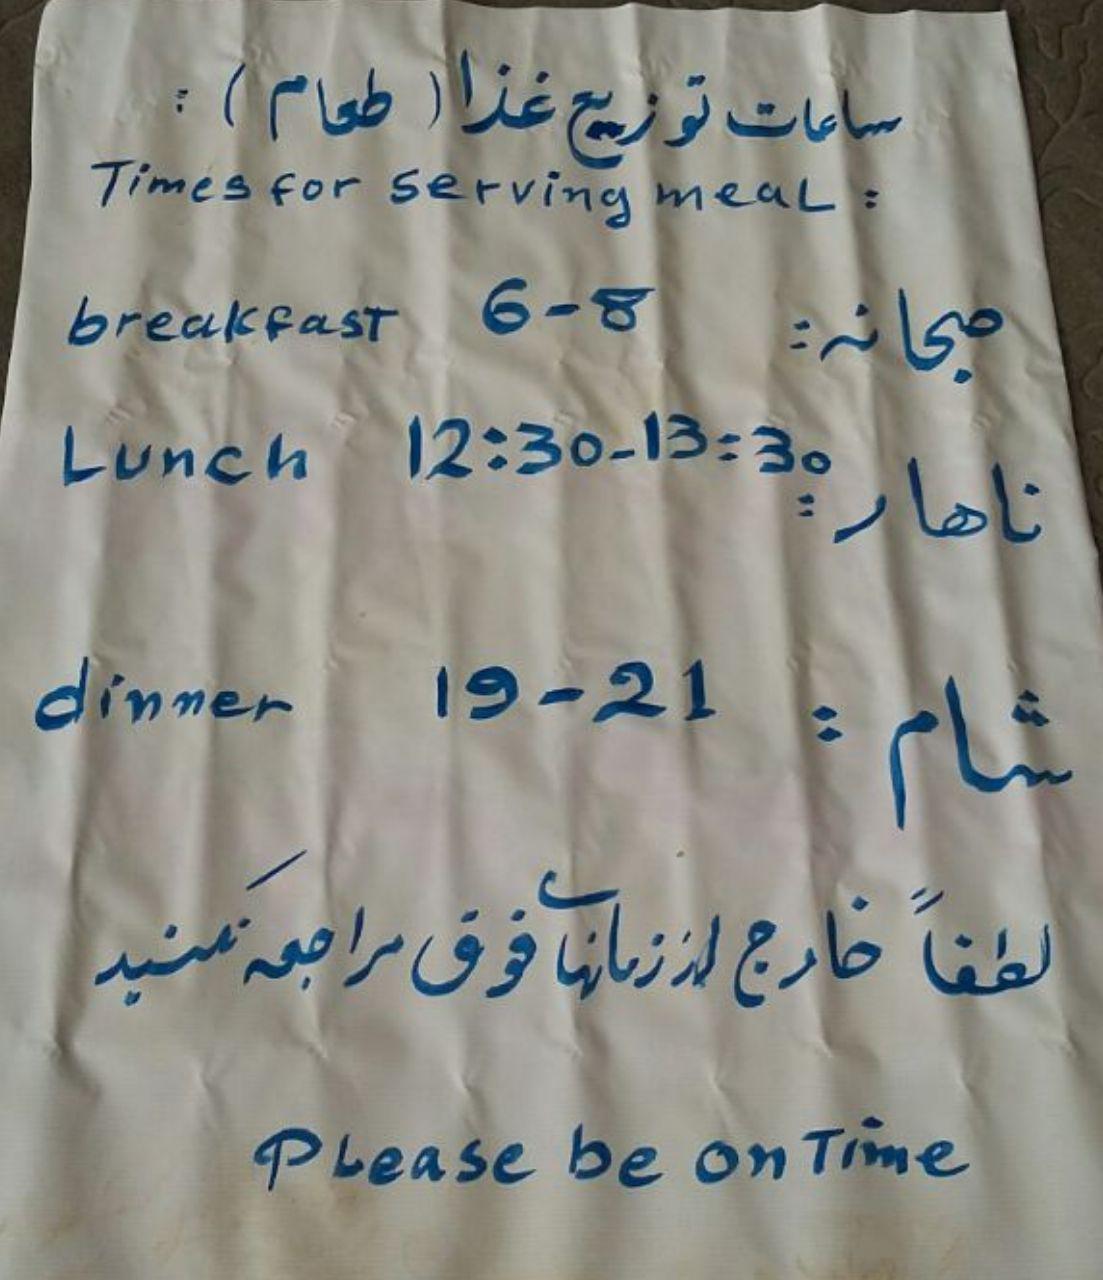 ساعات توزیع غذا ( طعام ) :
Times for serving meal :
breakfast 6-8 صبحانه :
Lunch 12:30-13:30 ناهار :
dinner 19-21 شام :
لطفاً خارج از زمانهای فوق مراجعه نکنید
Please be on Time